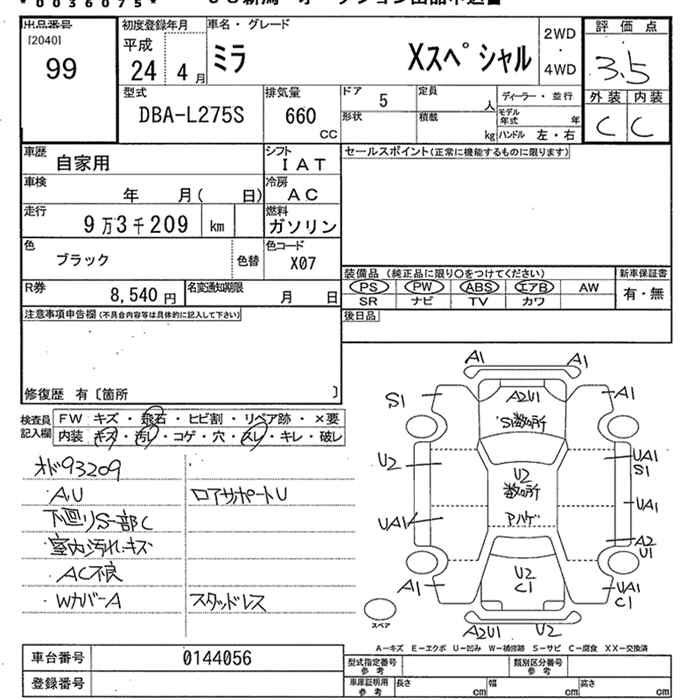 *0036075***
出品番号
[2040]
99
初度登録年月
平成
24 4月
車名・グレード
ミラ Xスペシャル
2WD
・
4WD
評価点
3.5
外装 内装
C C
型式
DBA-L275S
排気量
660
cc
ドア 5
形状
定員 人
積載 kg
ディーラー・並行
モデル年式 年
ハンドル 左・右
車歴
自家用
シフト
IAT
車検
年 月( 日)
冷房
AC
走行
9万3千209 km
燃料
ガソリン
色
ブラック
色替
色コード
X07
R券
8,540円
名変通知期限
月 日
セールスポイント(正常に機能するものに限ります)
装備品(純正品に限り〇をつけてください)
新車保証書
PS PW ABS エアB AW
SR ナビ TV カワ
有・無
後日品
注意事項申告欄(不具合内容等は具体的に記入して下さい)
修復歴 有〔箇所 〕
検査員記入欄
FW キズ・飛石・ヒビ割・リペア跡・×要
内装 キズ・汚レ・コゲ・穴・スレ・キレ・破レ
オド93209
AU ロアサポートU
下廻りS一部C
室内汚れ.キズ
AC不良
WカバーA スタッドレス
A1 A1
S1 A2U1 A1
S1数ヶ所
U2 U2 UA1
S1
数ヶ所
UA1 Aハゲ UA1
A2
U1
A1 U2 UA1
C1 C1
スペア
A2U1 U2
A-キズ E-エクボ U-凹み W-補修跡 S-サビ C-腐食 XX-交換済
車台番号 0144056
登録番号
型式指定番号
参考
類別区分番号
参考
車庫証明用
参考
長さ cm 幅 cm 高さ cm